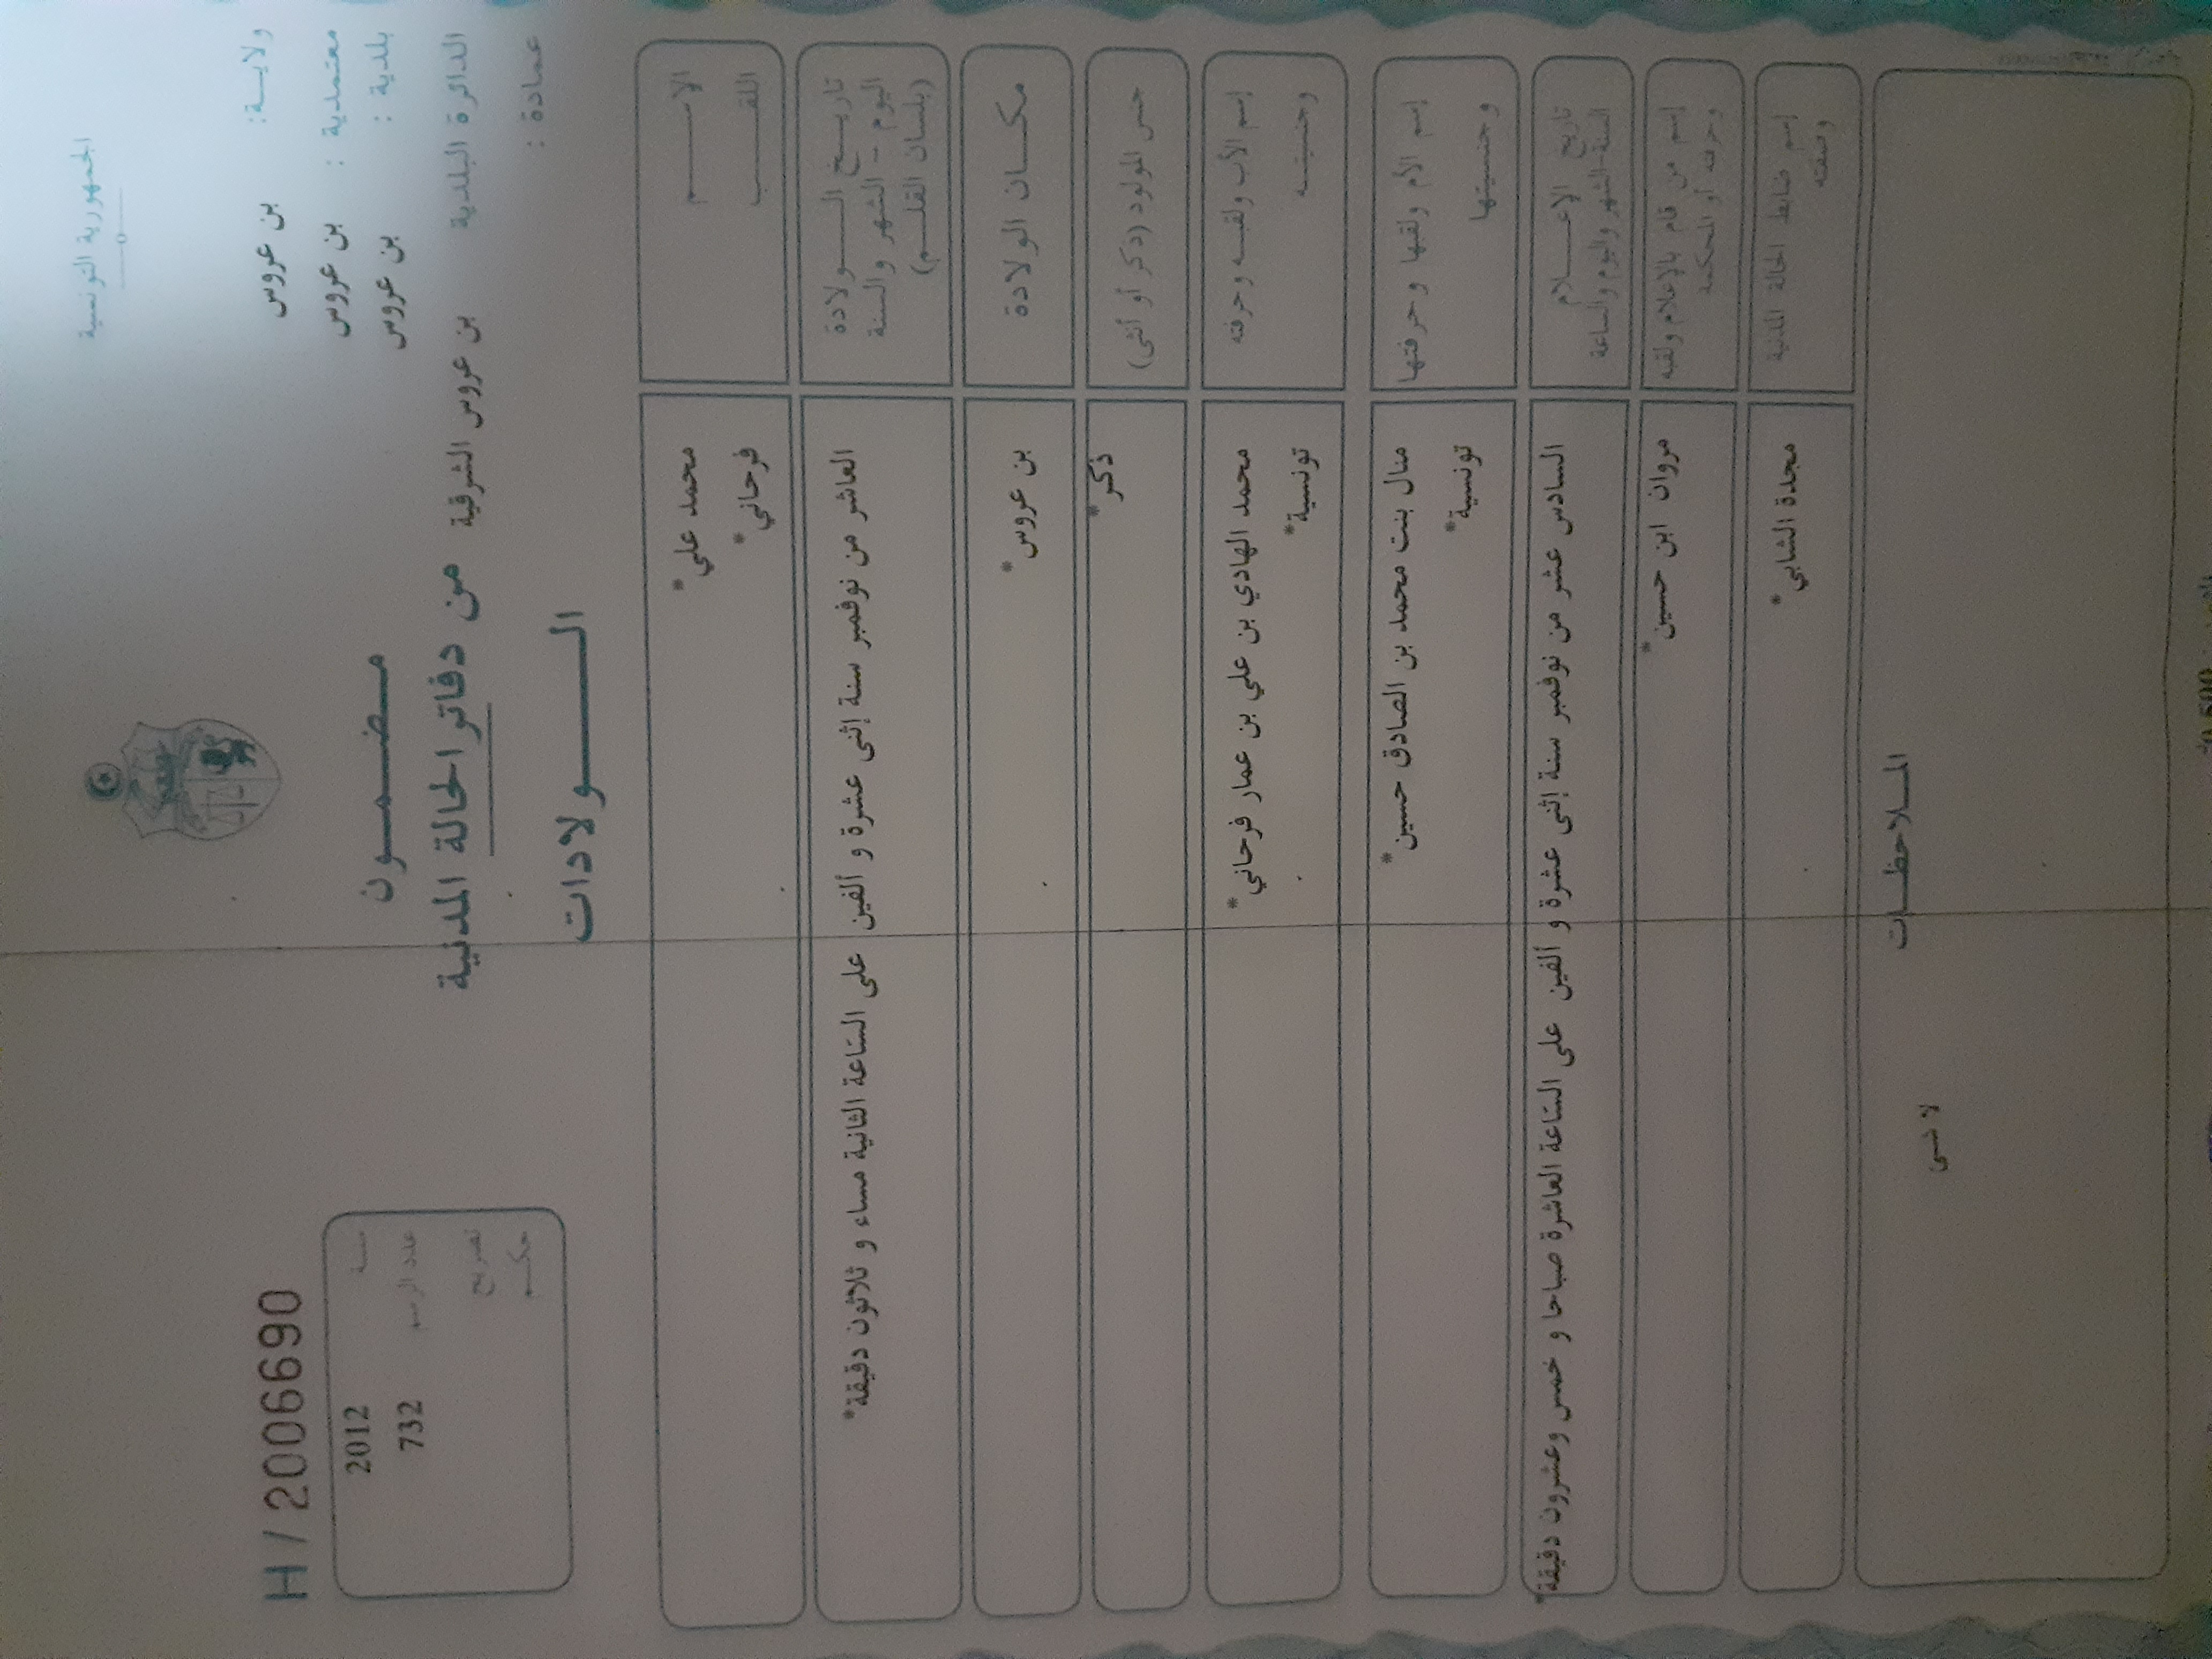 الجمهورية التونسية
ولايـــة: بن عروس
معتمدية : بن عروس
بلدية : بن عروس
الدائرة البلدية بن عروس الشرقية
عمادة :
H / 2006690
سنة 2012
عدد الرسم 732
تصريح
حكم
مضمون
من دفاتر الحالة المدنية
الولادات
الإسم محمد علي*
اللقب فرحاني*
تاريخ الولادة
اليوم - الشهر والسنة
(بلسان القلم)
العاشر من نوفمبر سنة إثنى عشرة و ألفين على السّاعة الثانية مساء و ثلاثون دقيقة*
مكان الولادة بن عروس*
جنس المولود (ذكر أو أنثى) ذكر*
إسم الأب ولقبه وحرفته محمد الهادي بن علي بن عمار فرحاني*
وجنسيته تونسية*
إسم الأم ولقبها وحرفتها منال بنت محمد بن الصادق حسين*
وجنسيتها تونسية*
تاريخ الإعلام
السنة-الشهر واليوم والساعة
السادس عشر من نوفمبر سنة إثنى عشرة و ألفين على السّاعة العاشرة صباحا و خمس وعشرون دقيقة*
إسم من قام بالإعلام ولقبه
وحرفته أو المحكمة
مروان ابن حسين*
إسم ضابط الحالة المدنية
وصفته
مجدة الشابي*
الملاحظات